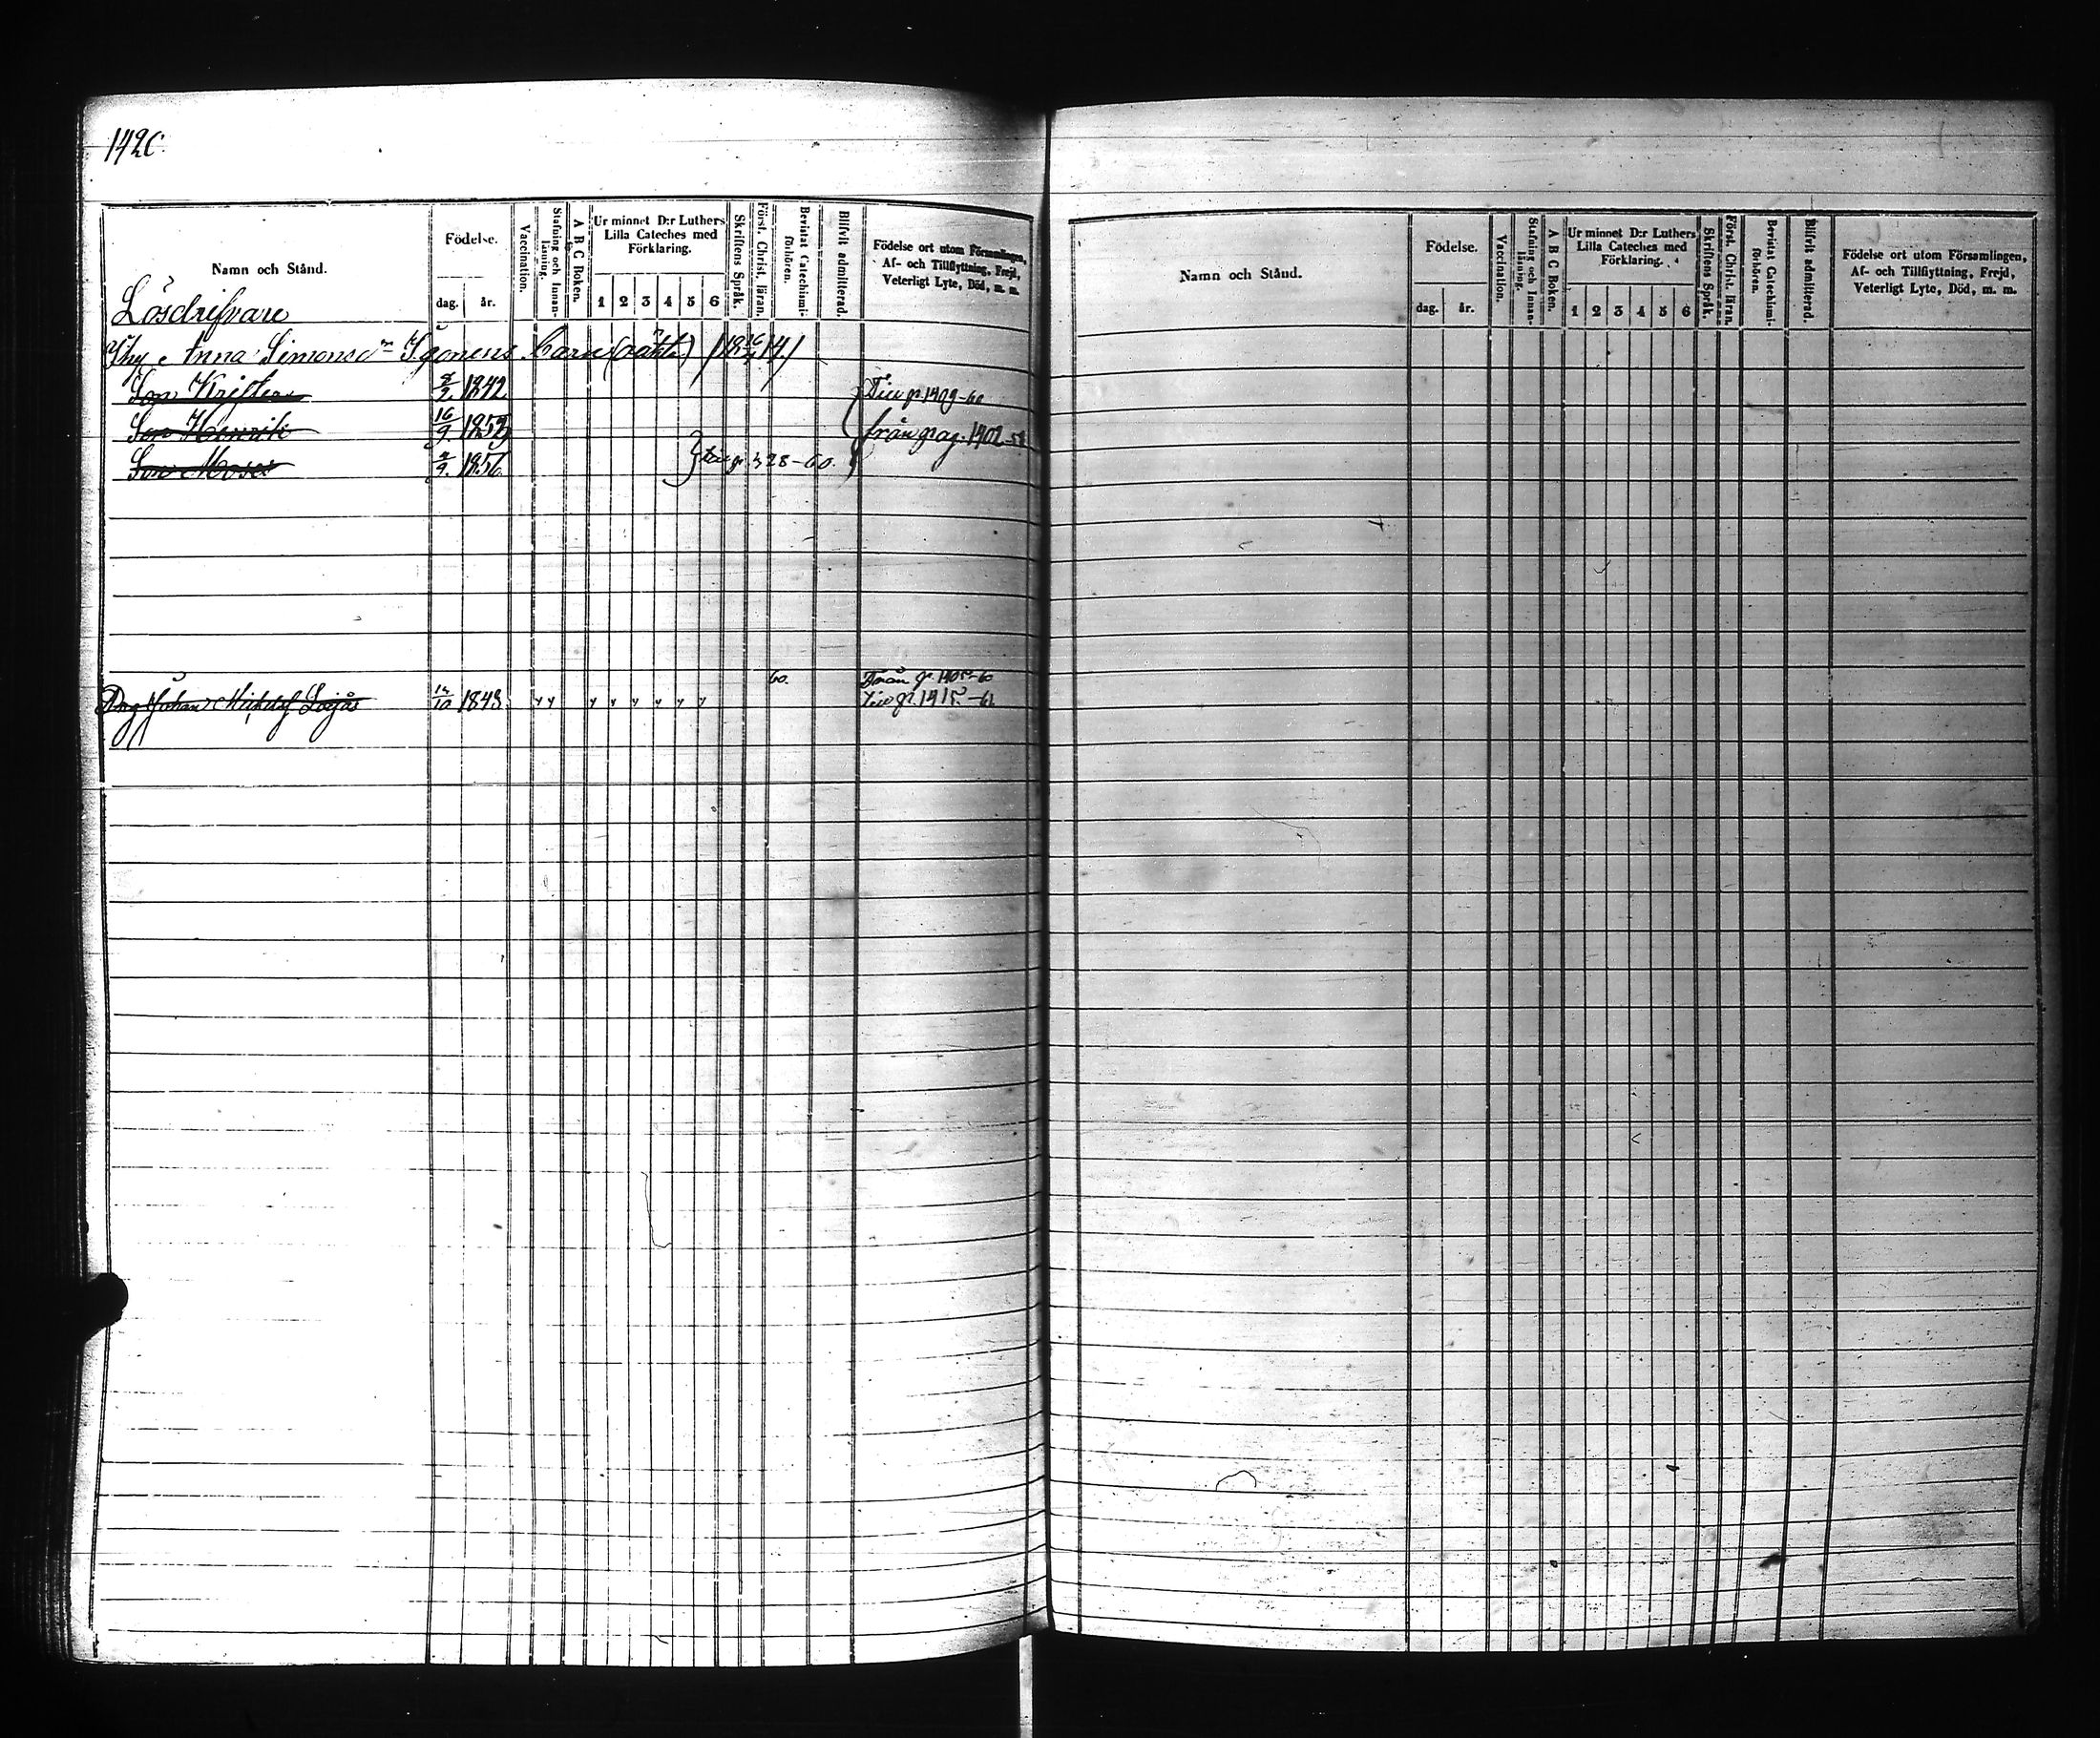 142C.
Namn och Stånd.
Födelse.
dag. år.
Vaccination.
Stafning och Innanläsning.
A B C Boken.
Ur minnet D:r Luthers Lilla Cateches med Förklaring.
1 2 3 4 5 6
Skriftens Språk.
Först. Christ. läran.
Bevistat Catechismiförhören.
Blifvit admitterad.
Födelse ort utom Församlingen,
Af- och Tillflyttning, Frejd,
Veterligt Lyte, Död, m. m.
Lösdrifvare
Anna Simonsd Barn (oäkta)
Son Krister 1842 1409-60
Son Henrik 16/9 1852 från pag. 1402
Son Moses 1856 428-60.
60. Från p. 1405-60
Johan 1843 1415-61
Namn och Stånd.
Födelse.
dag. år.
Vaccination.
Stafning och Innanläsning.
A B C Boken.
Ur minnet D:r Luthers Lilla Cateches med Förklaring.
1 2 3 4 5 6
Skriftens Språk.
Först. Christ. läran.
Bevistat Catechismiförhören.
Blifvit admitterad.
Födelse ort utom Församlingen,
Af- och Tillflyttning, Frejd,
Veterligt Lyte, Död, m. m.